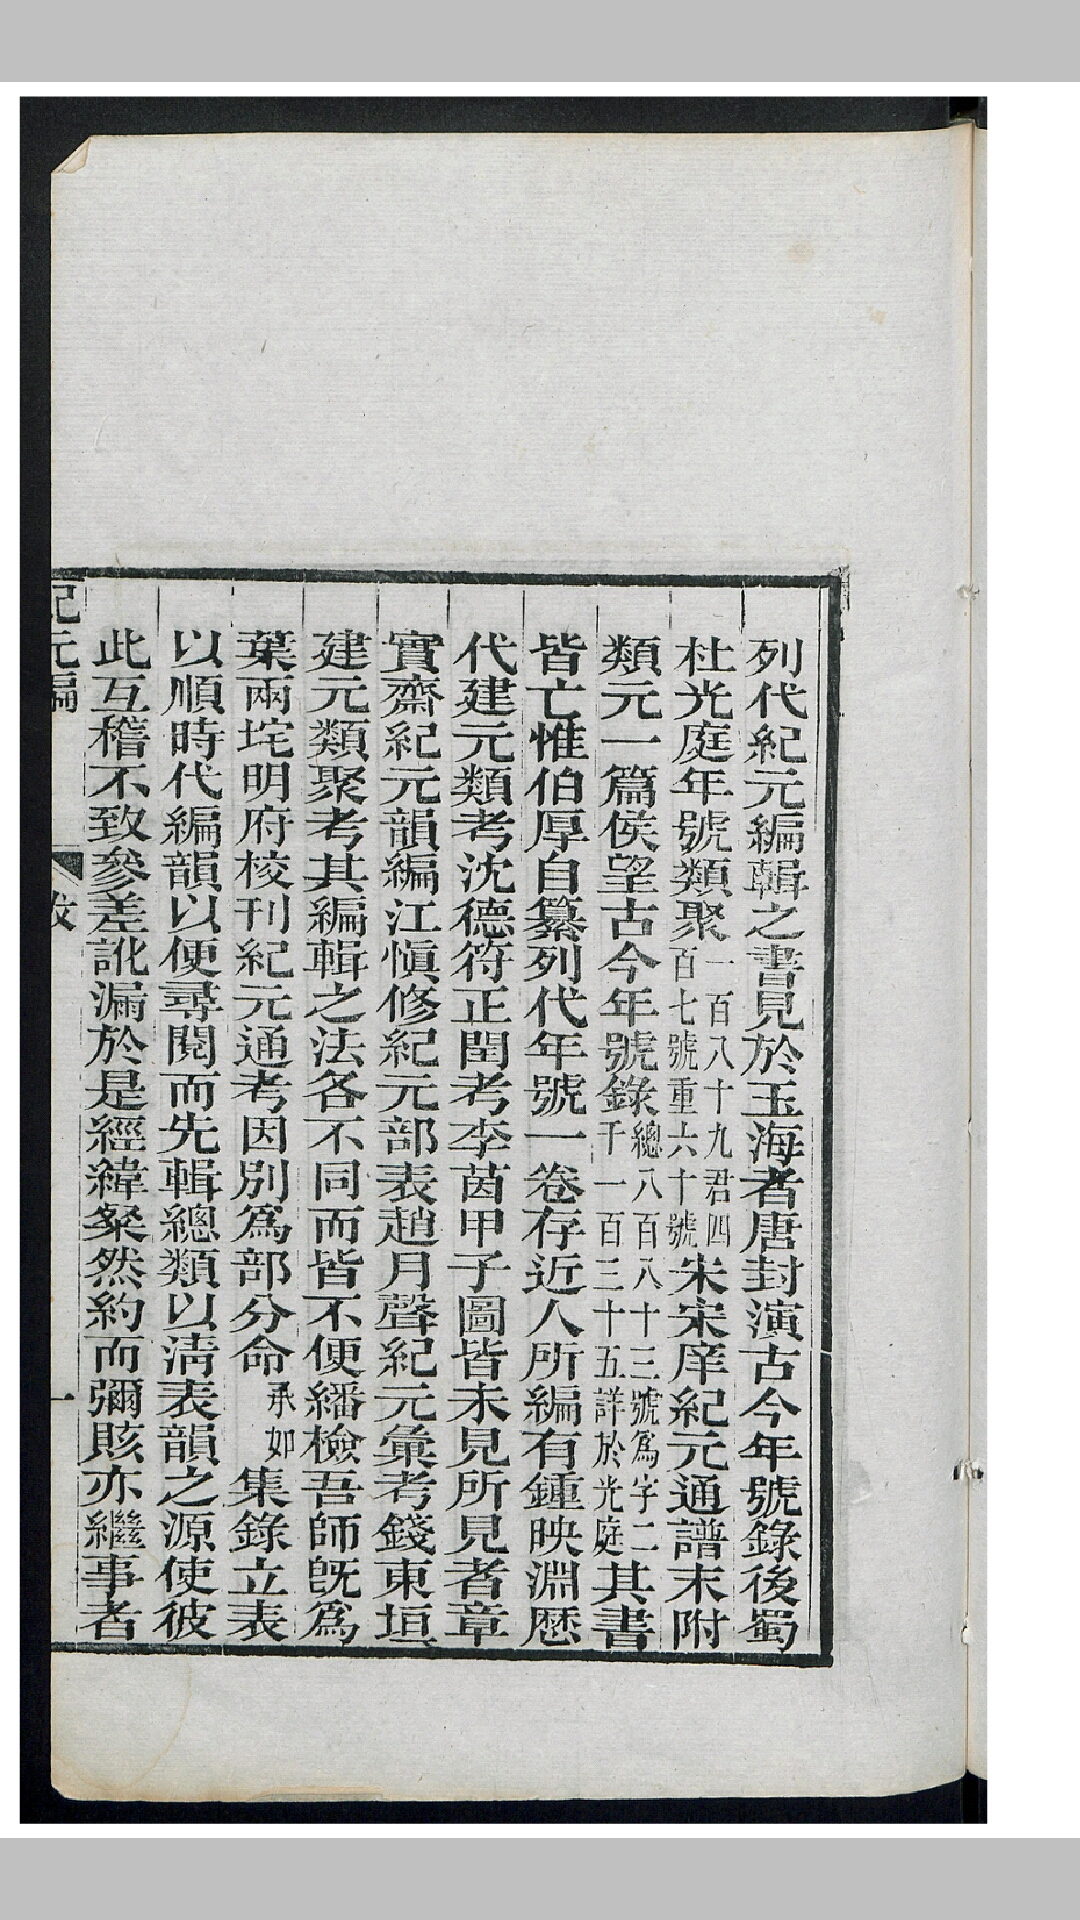 列代紀元編輯之書見於玉海者唐封演古今年號錄後蜀
杜光庭年號類聚一百八十九君四百七號重六十號宋宋庠紀元通譜末附
類元一篇侯望古今年號錄總八百八十三號爲字二千一百三十五詳於光庭其書
皆亡惟伯厚自纂列代年號一卷存近人所編有鍾映淵歷
代建元類考沈德符正閏考李茵甲子圖皆未見所見者章
實齋紀元韻編江愼修紀元部表趙月聲紀元彙考錢東垣
建元類聚考其編輯之法各不同而皆不便繙檢吾師旣爲
葉兩垞明府校刊紀元通考因別爲部分命承如集錄立表
以順時代編韻以便尋閱而先輯總類以淸表韻之源使彼
此互稽不致參差訛漏於是經緯粲然約而彌賅亦繼事者
紀元編
一